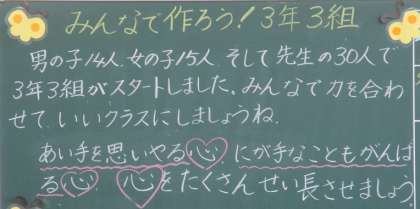 みんなで作ろう!3年3組
男の子14人、女の子15人、そして先生の30人で
3年3組がスタートしました。みんなで力を合わ
せて、いいクラスにしましょうね。
あい手を思いやる心 にが手なこともがんば
る心 心をたくさんせい長させましょう。